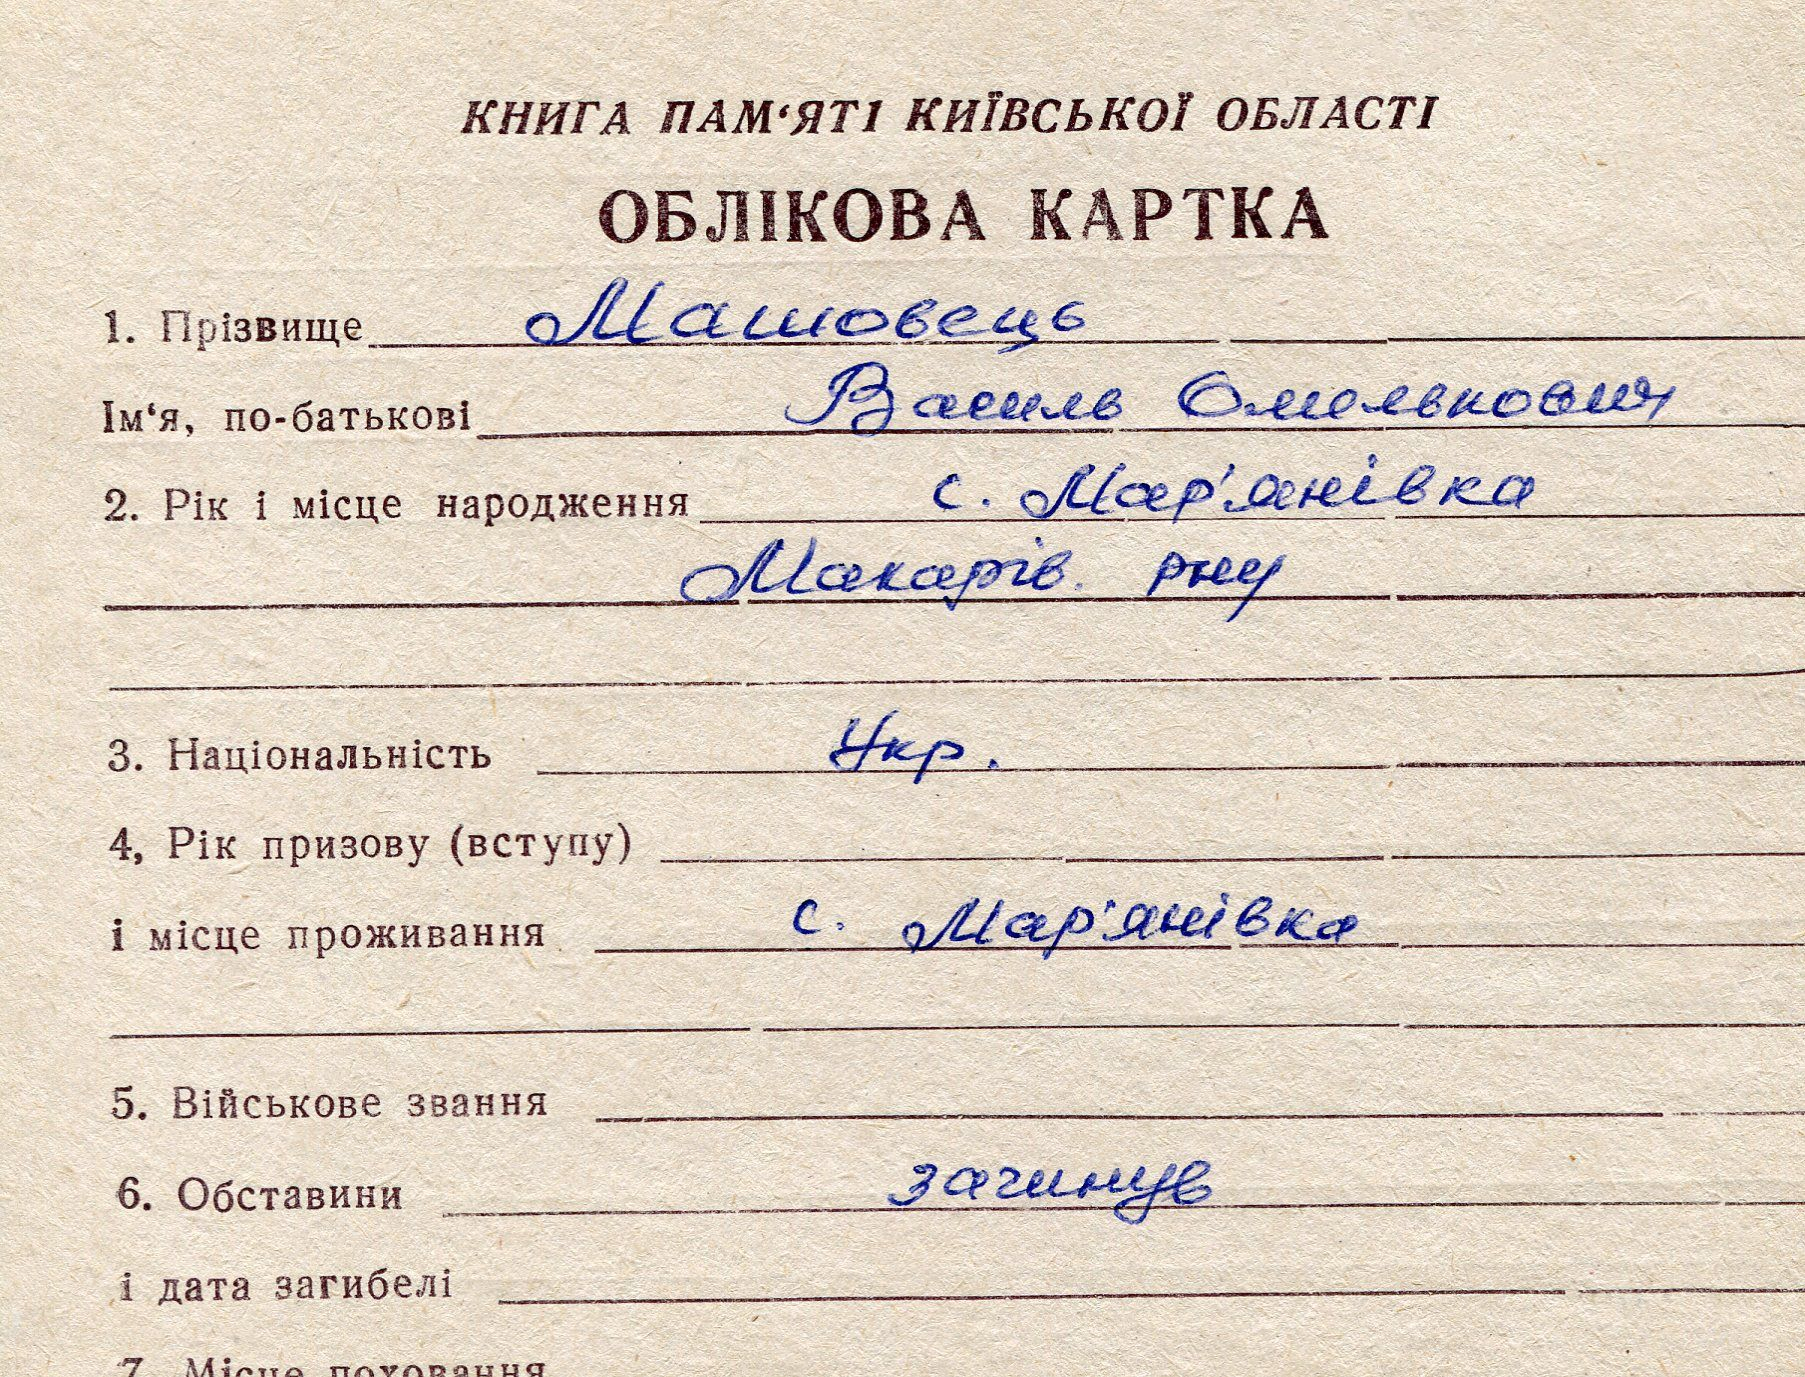 КНИГА ПАМ‘ЯТІ КИЇВСЬКОЇ ОБЛАСТІ
ОБЛІКОВА КАРТКА
1. Прізвище Машовець
Ім‘я, по-батькові Василь Омелькович
2. Рік і місце народження с. Мар'янівка
Макарів. р-ну
3. Національність Укр.
4, Рік призову (вступу)
і місце проживання с. Мар'янівка
5. Військове звання
6. Обставини загинув
і дата загибелі
7. Місце поховання